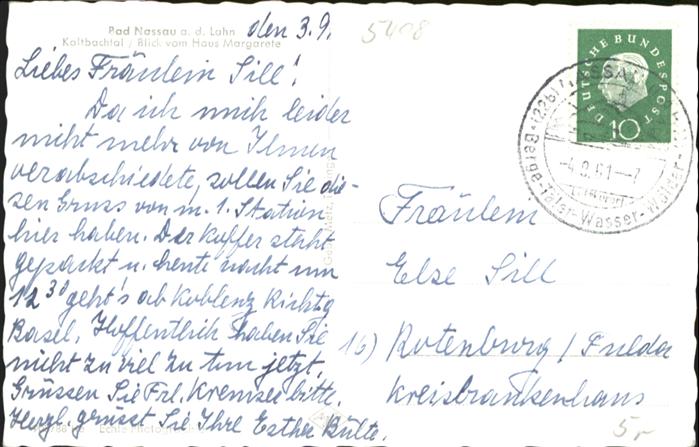 Bad Nassau a. d. Lahn
Kaltbachtal / Blick vom Haus Margarete
den 3.9.
Liebes Fräulein Sill!
Da ich mich leider
nicht mehr von Ihnen
verabschiedete, sollen Sie die-
sen Gruss von m. 1. Station
hier haben. Der Koffer steht
gepackt u. heute nacht um
12 30 geht's ab Koblenz Richtg
Basel. Hoffentlich haben Sie
nicht zu viel zu tun jetzt.
Grüssen Sie Frl. Kremser bitte.
Herzl. grüsst Sie Ihre Esther Bülte.
5408
DEUTSCHE BUNDESPOST
10
NASSAU
Berge-Täler-Wasser-Wälder
Fräulein
Else Sill
16) Rotenburg / Fulda
Kreiskrankenhaus
5,-